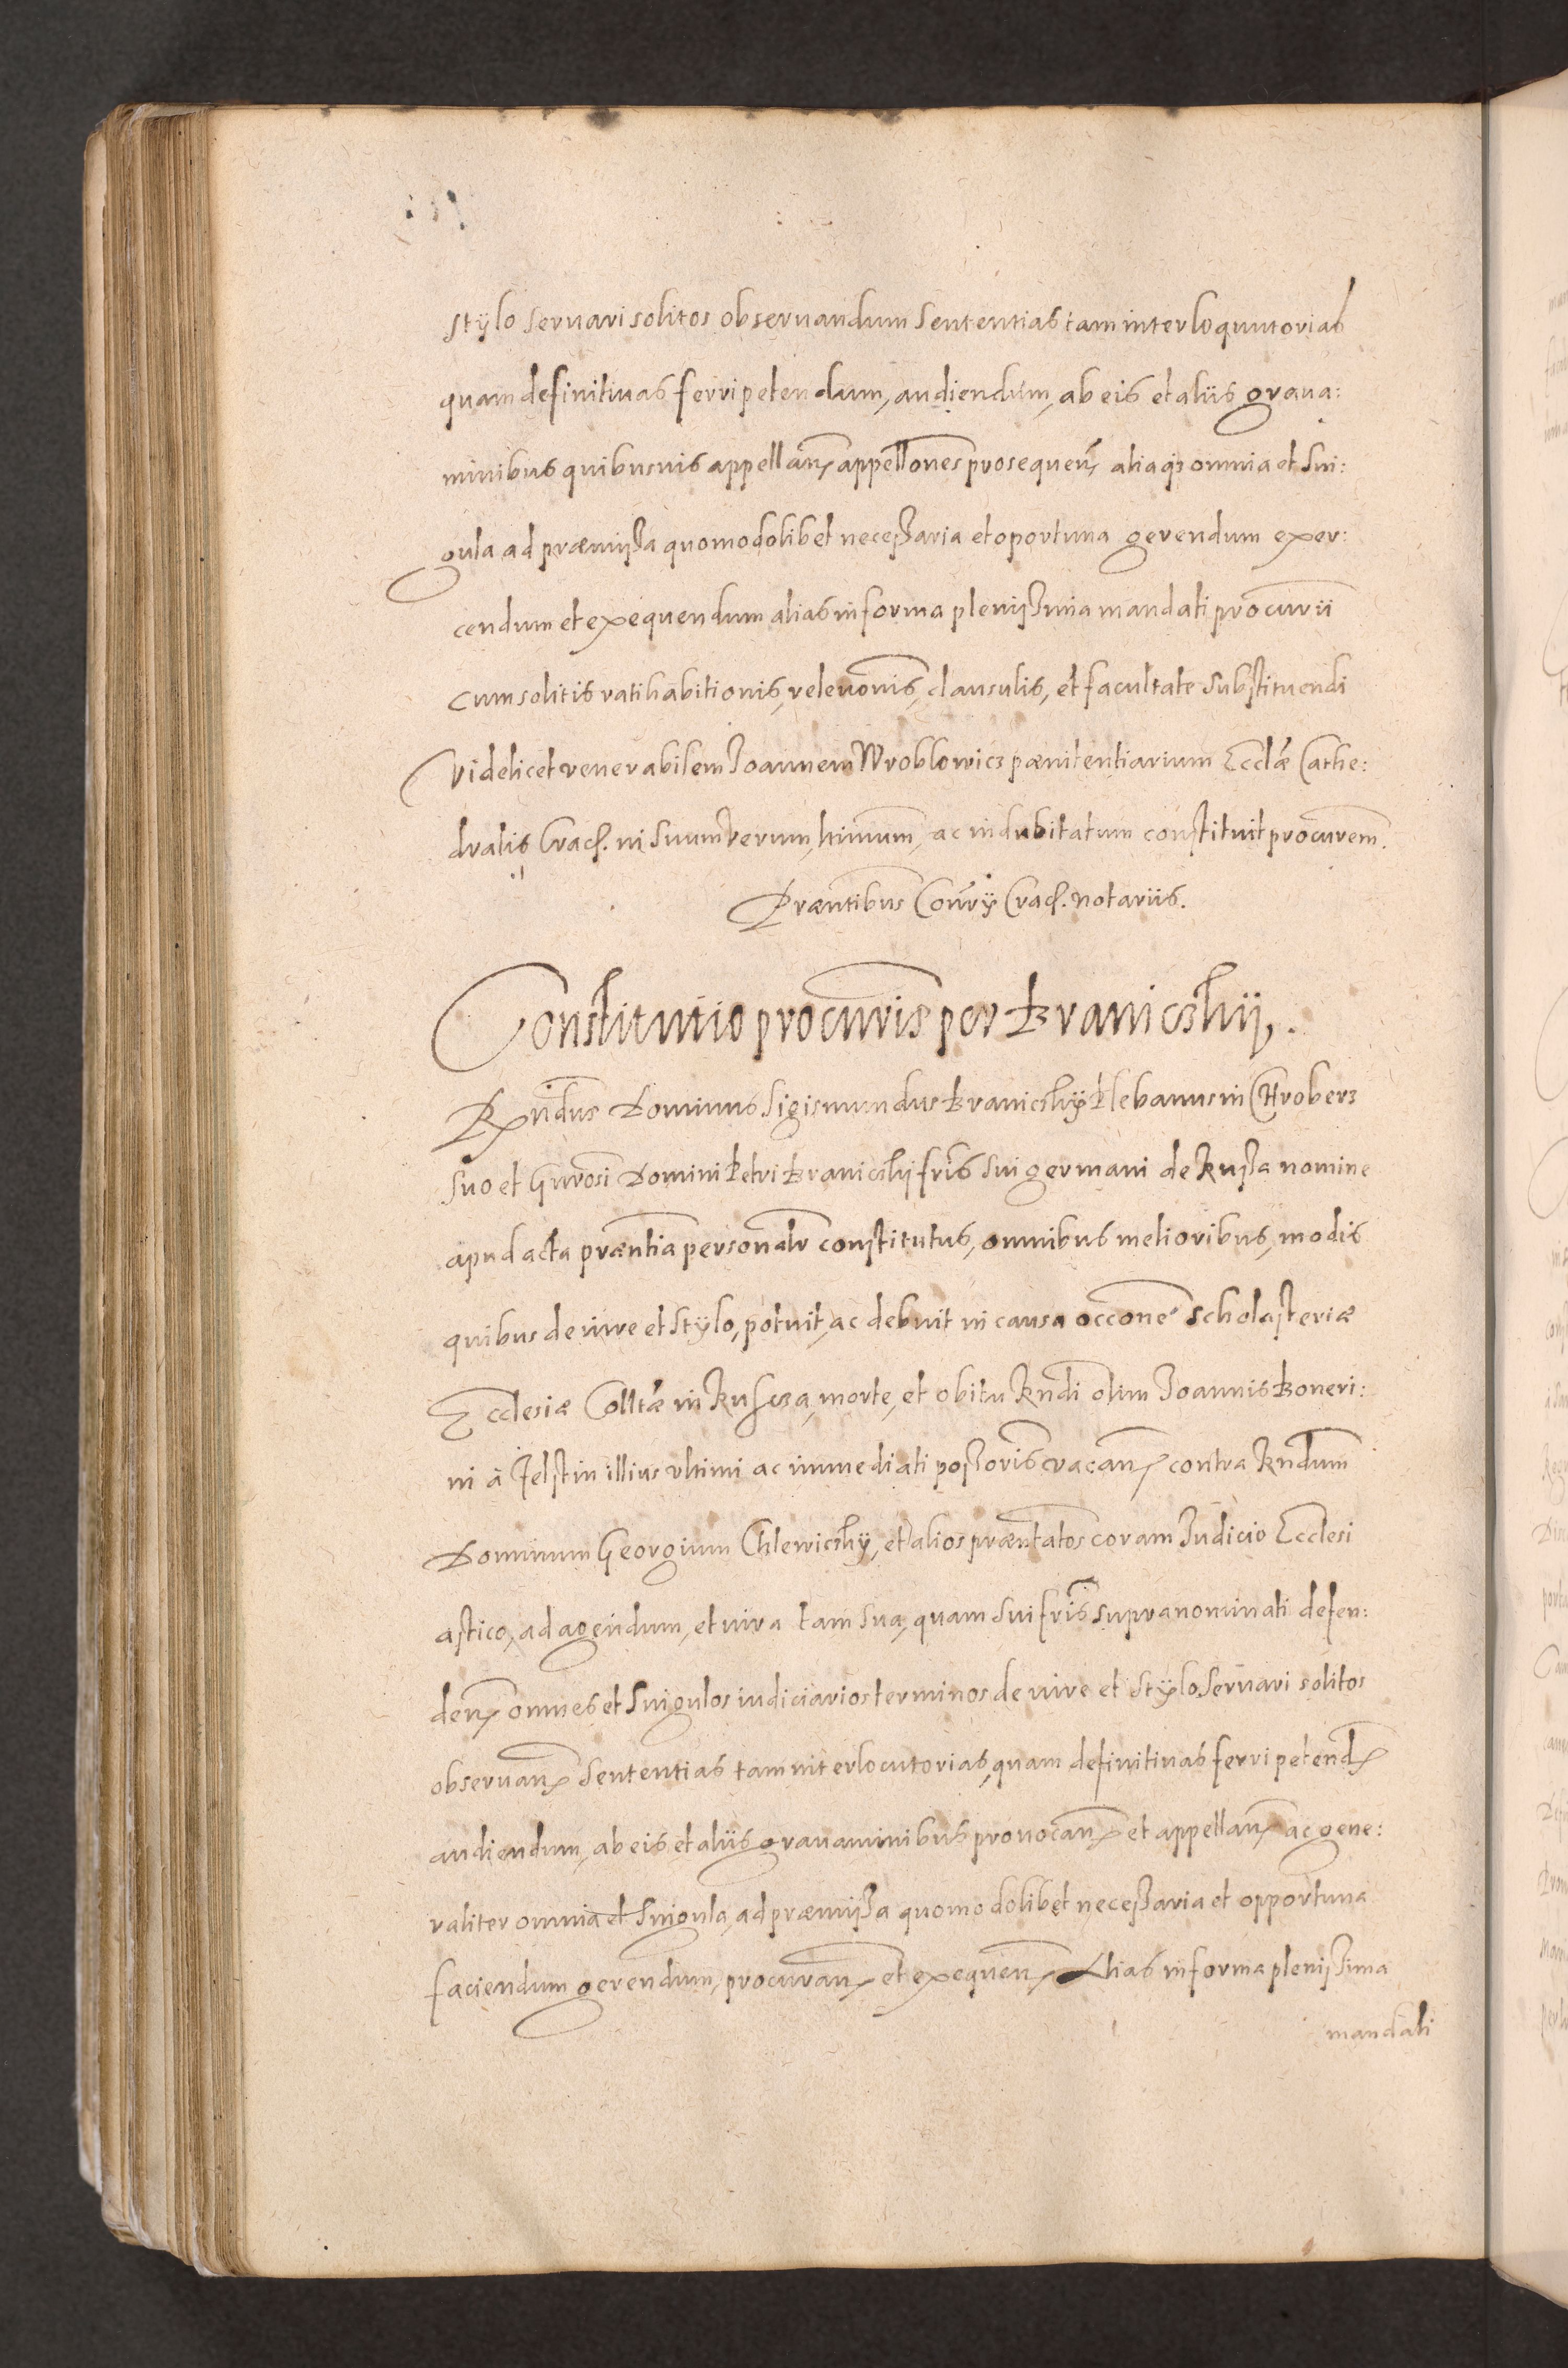 stÿlo seruari solitos obseruandum Sententias tam interloquutorias
quam definitiuas ferri petendum, audiendum, ab eis et aliis graua:
minibus quibusuis appellan̄ appellōnes prosequen̄ aliaqз omnia et Sin:
gula ad præmissa quomodolibet necessaria et oportuna gerendum exer:
cendum et exequendum alias in forma plenissima mandati procur̄ii
cum solitis ratihabitionis, releuōnis, clausulis, et facultate Substituendi
Videlicet venerabilem Joannem Wroblowicz pænitentiarium Eccl̄æ Cathe:
dralis Crac̄. in Suum verum, l̄timum, ac indubitatum constituit procur̄em.
Præn̄tibus Con̄rÿ Crac̄. notariis.
Constitutio procur̄is per Braniczkÿ.
R̄ndus Dominus Sigismundus Braniczkÿ Plebanus in Chroberz
Suo et Gn̄rosi Domini Petri Braniczkÿ fr̄is Sui germani de Russa nomine
apud acta præn̄tia personalr̄ constitutus, omnibus melioribus, modis
quibus de iure et Stÿlo, potuit, ac debuit in causa occōne Scholasteriæ
Ecclesiæ Coll̄tæ in morte, et obitu R̄ndi olim Joannis Boneri:
ni à Jelstin illius vltimi ac immediati possōris vacan̄ contra R̄ndum
Dominum Georgium Chlewiczkÿ, et alios præn̄tatos coram Judicio Ecclesi
astico, ad agendum, et iura tam Sua, quam Sui fr̄is supranominati defen:
den̄ omnes et Singulos iudiciarios terminos de iure et Stÿlo Seruari solitos
obseruan̄ Sententias tam interlocutorias, quam definitiuas ferri petend̄
audiendum, ab eis et aliis grauaminibus prouocan̄ et appellan̄ ac gene:
raliter omnia et Singula, ad præmissa quomodolibet necessaria et opportuna
faciendum gerendum, procuran̄ et exequen̄ Alias in forma plenissima
mandati